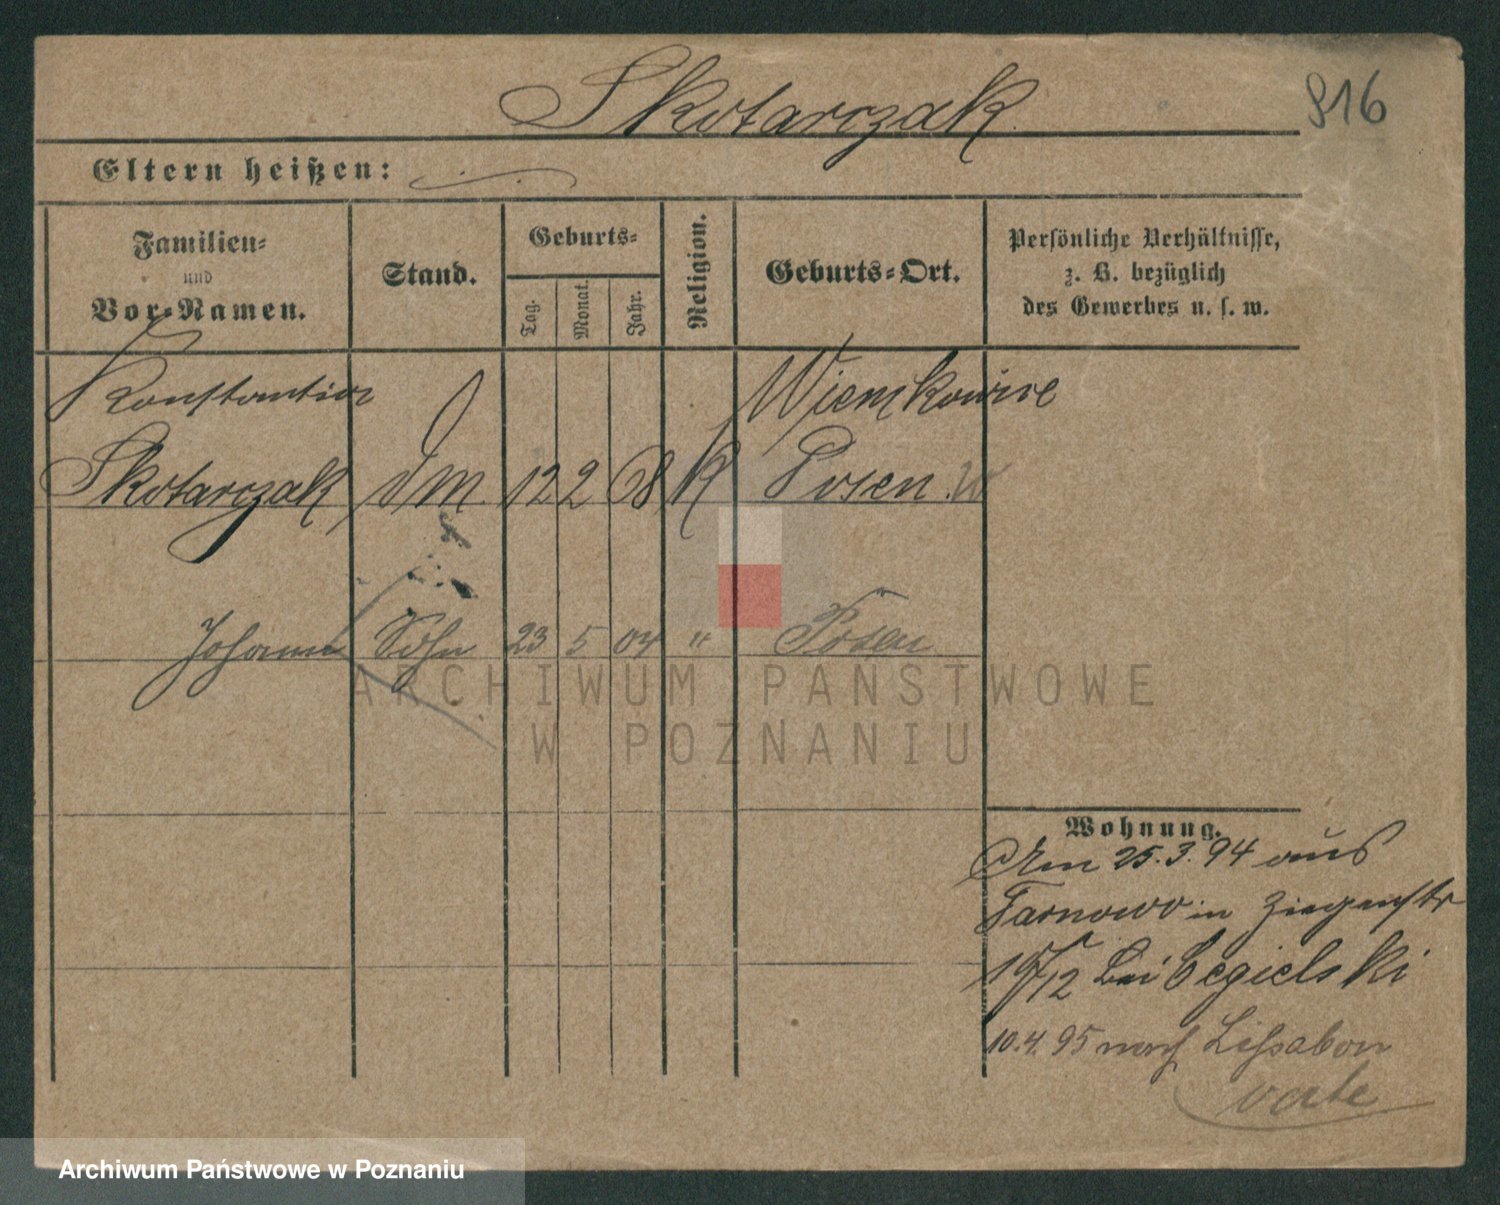 Skotarczak
916
Eltern heißen:
Familien-
und
Vor-Namen.
Stand.
Geburts-
Tag.
Monat.
Jahr.
Religion.
Geburts-Ort.
Persönliche Verhältnisse,
z. B. bezüglich
des Gewerbes u. s. w.
Konstantin
Skotarczak
12 2 68 K
Posen
Johann Sohn 23 5 04 " Posen
ARCHIWUM PAŃSTWOWE
W POZNANIU
Wohnung.
Am 25.3.94 aus
Tarnowo in Ziegenstr
bei Cegielski
10.4.95 nach Lissabon
Archiwum Państwowe w Poznaniu